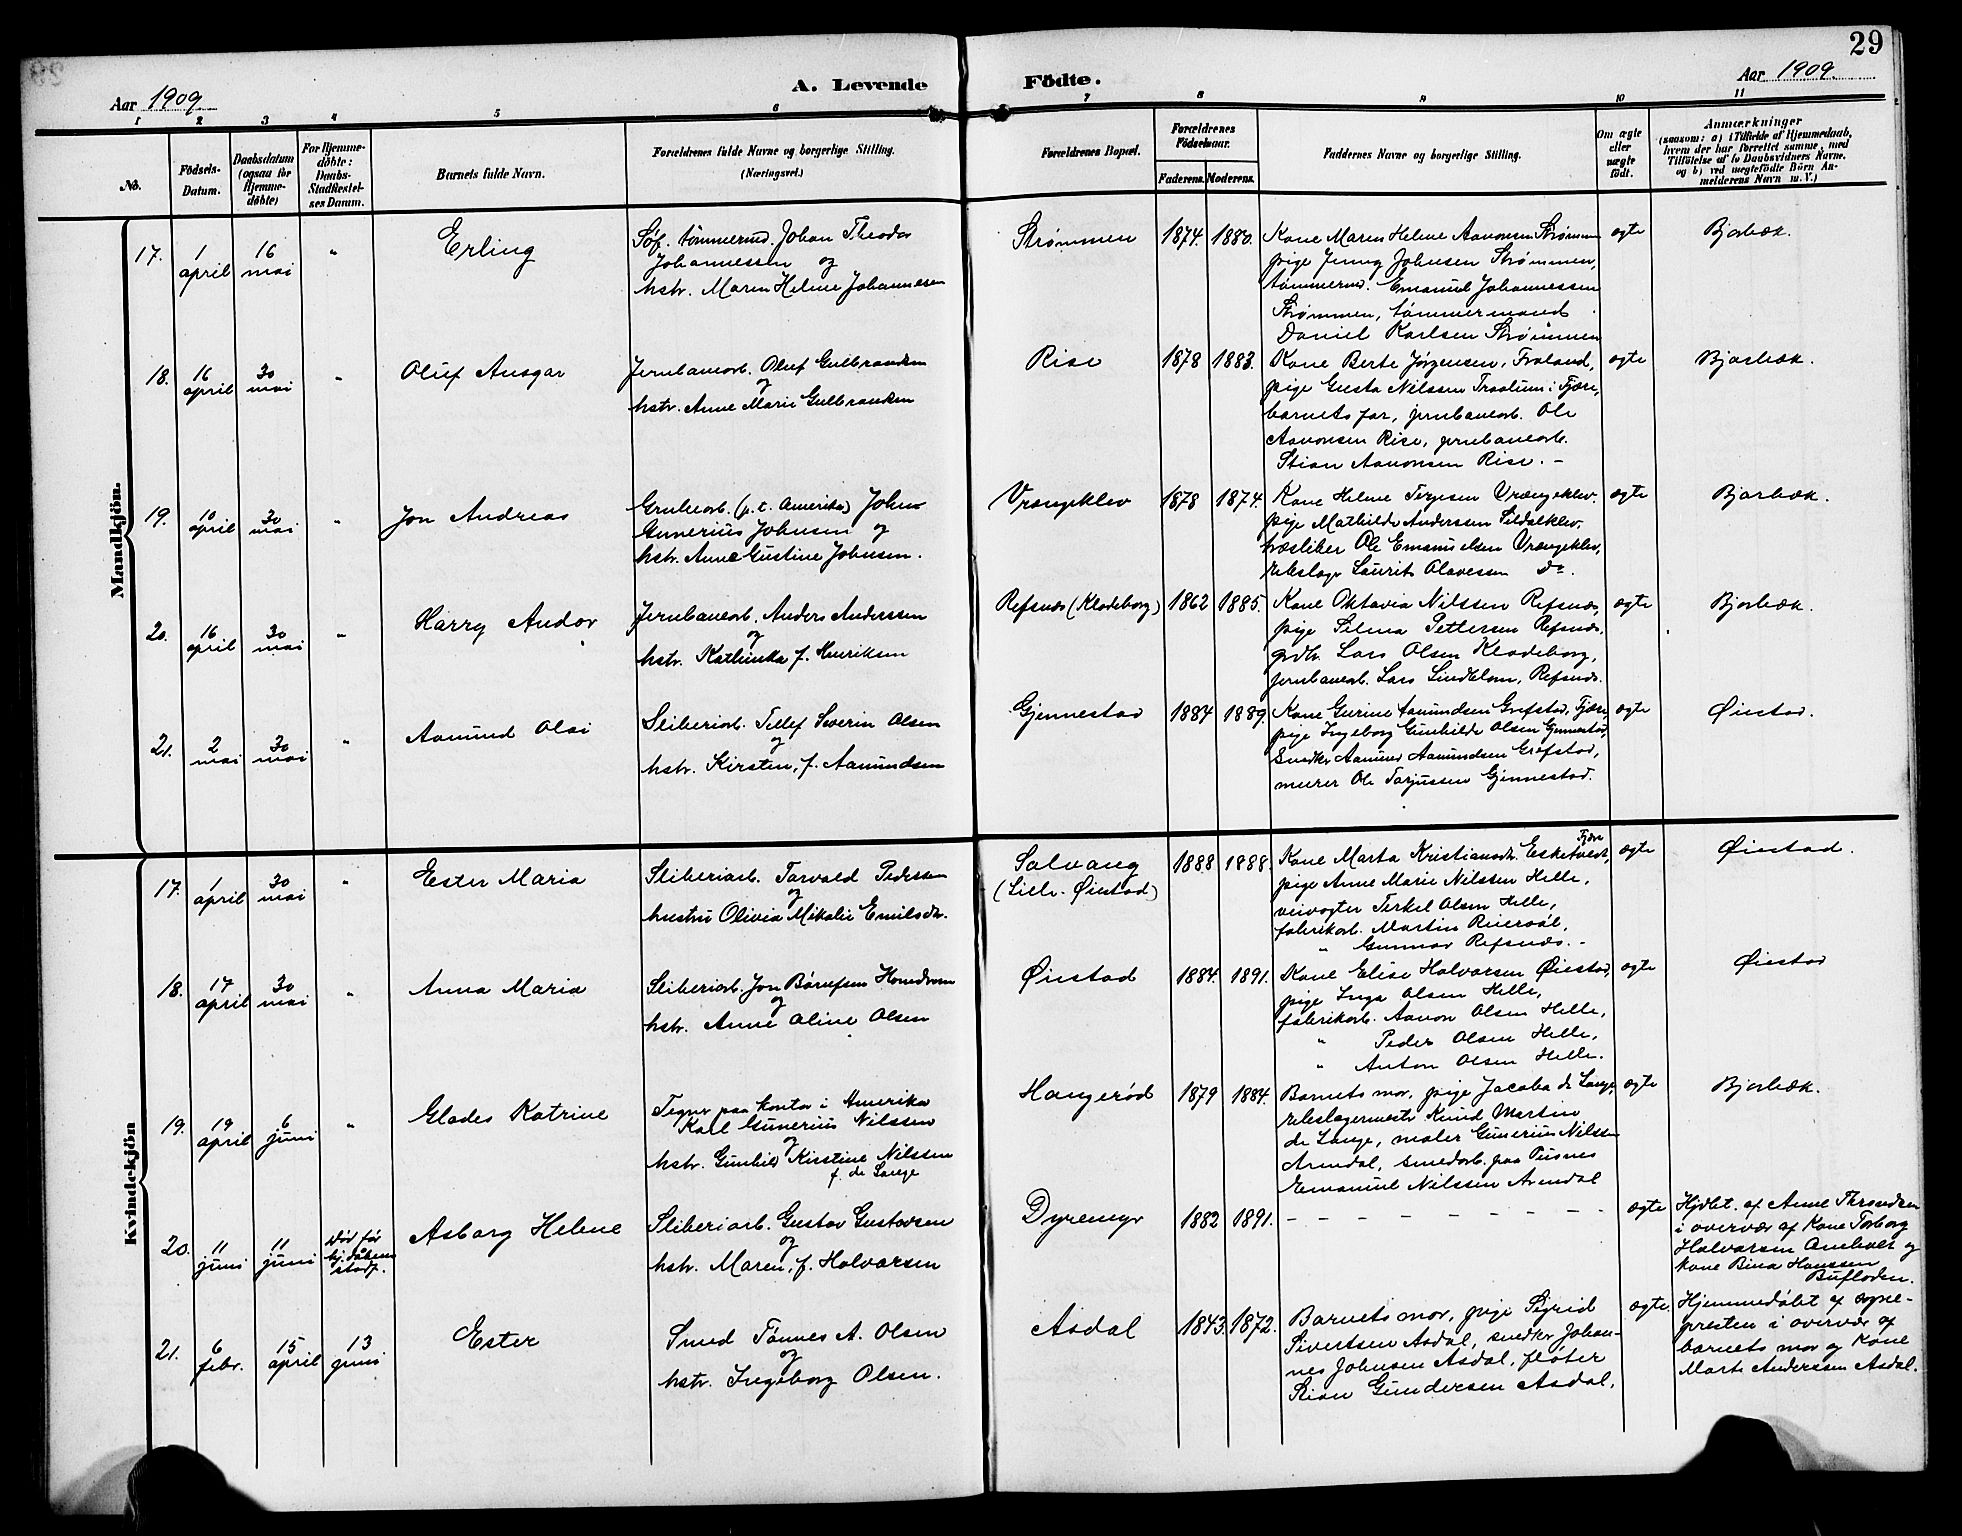 29
Aar 1909
A. Levende
Födte.
Aar 1909.
1 2 3 4 5 6 7 8 9 10 11
No.
Födsels-
Datum.
Daabsdatum
(ogsaa for
Hjemme-
döbte)
For Hjemme-
döbte:
Daabs-
Stadfæstel-
ses Datum.
Barnets fulde Navn.
Forældrenes fulde Navne og borgerlige Stilling.
(Næringsvei.)
Forældrenes Bopæl.
Forældrenes
Födselsaar.
Faderens. Moderens.
Faddernes Navne og borgerlige Stilling.
Om ægte
eller
uægte
födt.
Anmærkninger
(saasom: a) i Tilfælde af Hjemmedaab,
hvem der har forrettet samme, med
Tilföielse af to Daabsvidners Navne,
og b) ved uægtefödte Börn An-
melderens Navn m. V.)
Mandkjön.
17. 1 april 16 mai " Erling
Søf. tømmermd. Johan Theodor
Johannessen og
hstr. Maren Helene Johannesen
Strømmen 1874. 1880.
Kone Maren Helene Aanonsen Strømmen
pige Jenny Johnsen Strømmen,
tømmermd. Emanuel Johannessen
Strømmen, tømmermand
Daniel Karlsen Strømmen
ægte Bjorbæk.
18. 16 april 30 mai " Oluf Ansgar
Jernbanearb. Oluf Gulbrandsen
og
hstr. Anne Marie Gulbrandsen
Rise 1878 1883.
Kone Berte Jørgensen, Froland,
pige Gusta Nilssen Traalum i Fjære,
barnets far, jernbanearb. Ole
Aanonsen Rise, jernbanearb.
Stian Aanonsen Rise. -
ægte Bjorbæk.
19. 10 april 30 mai " Jon Andreas
Grubearb. (p.t. Amerika) John
Gunerius Johnsen og
hstr. Anne Gustine Johnsen.
Vrængeklev 1878 1874.
Kone Helene Terjesen Vrængeklev.
pige Mathilde Anderssen Sildalklev,
træsliber Ole Emanuelsen Vrængeklev,
rebslager Laurits Olavessen do.
ægte Bjorbæk.
20. 16 april 30 mai " Harry Andor
Jernbanearb. Anders Anderssen
og
hstr. Kathinka f. Henriksen
Refsnæs (Klodeborg) 1862 1885.
Kone Oktavia Nilssen Refsnæs,
pige Selma Pettersen Refsnæs,
grdb. Lars Olsen Klodeborg,
jernbanearb. Lars Lindblom, Refsnæs.
ægte Bjorbæk.
21. 2 mai 30 mai " Aamund Olai
Sliberiarb. Tellef Severin Olsen
og
hstr. Kirsten, f. Aamundsen
Gjennestad 1884 1889.
Kone Gurine Aamundsen Grefstad, Fjære,
pige Ingeborg Gunhilde Olsen Gjennestad,
Snedker Aamund Aamundsen Grefstad,
murer Ole Tarjussen Gjennestad.
ægte Øiestad.
Kvindekjön
17. 1 april 30 mai " Ester Maria
Sliberiarb. Torvald Pederssen
og
hustru Olivia Mikalie Emilsdtr.
Solvang
(Lille-Øiestad) 1888 1888.
Kone Marta Kristiansdtr. Esketvedt, Fjære
pige Anne Marie Nilssen Helle,
veivogter Terkel Olsen Helle,
fabrikarb. Martin Rueraål,
" Gunnar Refsnæs. -
ægte Øiestad.
18. 17 april 30 mai " Anna Maria
Sliberiarb. Jon Børufsen Homdrom
og
hstr. Anne Oline Olsen
Øiestad 1884. 1891.
Kone Elise Halvorsen Øiestad,
pige Inga Olsen Helle,
fabrikarb. Aanon Olsen Helle,
" Peder Olsen Helle,
" Anton Olsen Helle.
ægte Øiestad
19. 19 april 6 juni " Glades Katrine
Tegner paa kontor i Amerika
Karl Gunerius Nilssen
og
hstr. Gunhild Kisstine Nilssen
f. de Lange
Haugerød 1879 1884.
Barnets mor, pige Jacoba de Lange,
rebslagermester Knud Martin
de Lange, maler Gunerius Nilssen
Arendal, smedarb. paa Pusnes
Emanuel Nilssen Arendal
ægte Bjorbæk.
20. 11 juni 11 juni Død før
hj. dåbens
stadf. Asborg Helene
Sliberiarb. Gustav Gustavsen
og
hstr. Maren, f. Halvorsen
Dyremyr 1882 1891. - - - - - - - - -
ægte Hjdbt. af Anne Throndsen
i overvær af Kone Torborg
Halvorsen og
kone Bina Hanssen
Bufloden.
21. 6 febr. 15 april 13 juni Ester
Smed Tønnes A. Olsen
og
hstr. Ingeborg Olsen.
Asdal 1843. 1872.
Barnets mor, pige Sigrid
Sivertsen Asdal, snedker Johan-
nes Johnsen Asdal, fløter
Stian Gundersen Asdal.
ægte. Hjemmedøbt af sogne-
presten i overvær af
barnets mor og Kone
Marte Anderssen Asdal.